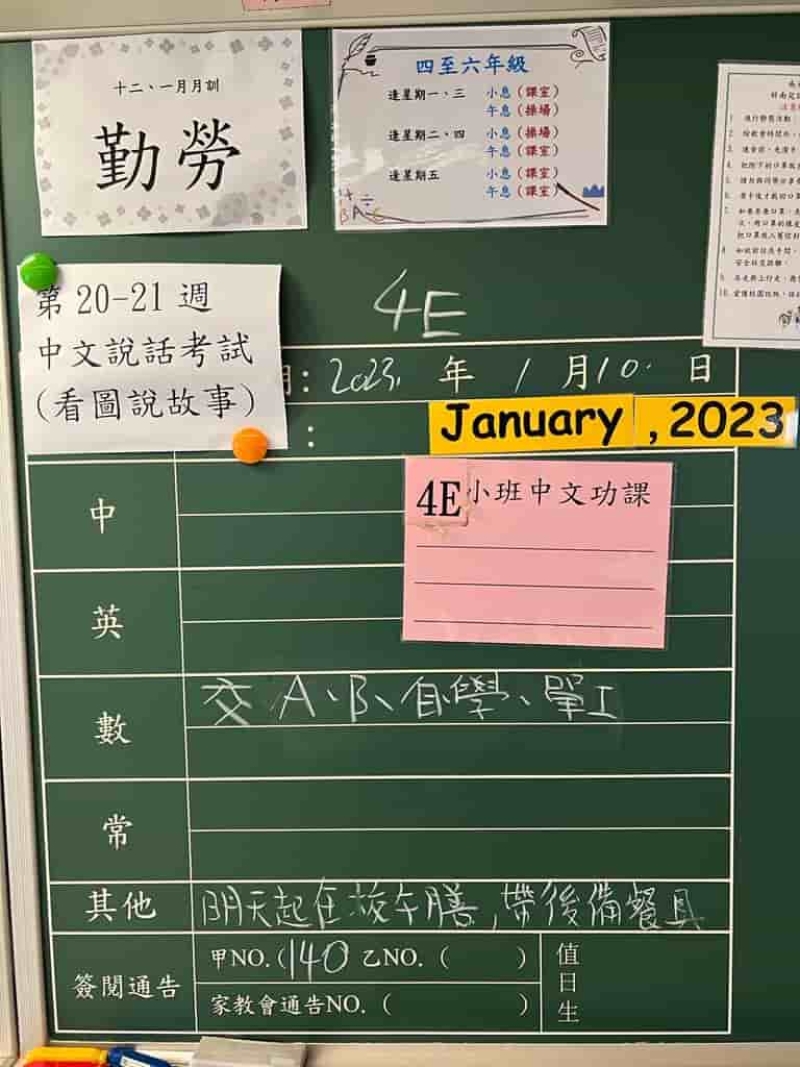 十二、一月月訓
勤勞
四至六年級
逢星期一、三 小息（課室）
午息（操場）
逢星期二、四 小息（操場）
午息（課室）
逢星期五 小息（課室）
午息（課室）
第 20-21 週
中文說話考試
（看圖說故事）
4E
期: 2023. 年 1 月 10. 日
:
January , 2023
4E 小班中文功課
中
英
數 交 A、B、自學、單工
常
其他 明天起在校午膳,帶後備餐具
簽閱通告
甲NO. (140 乙NO. ( )
家教會通告NO. ( )
值日生